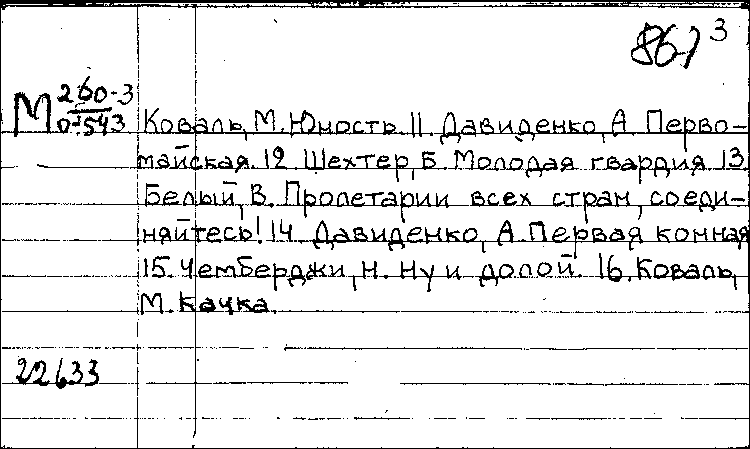 3
М 260-3
0-543
Коваль, М. Юность. 11. Давиденко, А. Перво-
майская. 12. Шехтер, Б. Молодая гвардия. 13.
Белый, В. Пролетарии всех стран, соеди-
няйтесь! 14. Давиденко, А. Первая конная
15. Чемберджи, Н. Ну и долой. 16. Коваль,
М. Качка.
22633